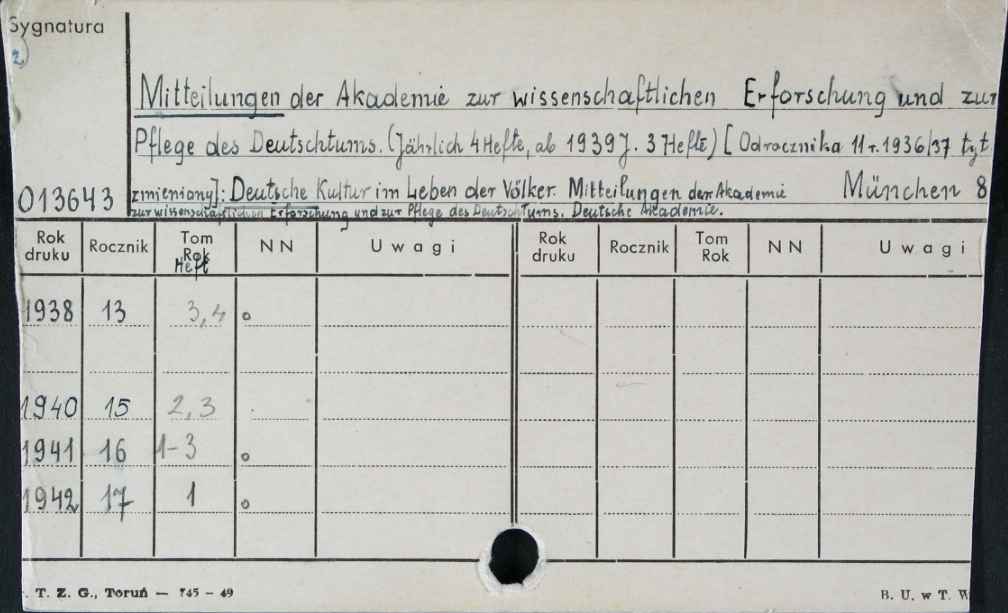 Sygnatura
2)
Mitteilungen der Akademie zur wissenschaftlichen Erforschung und zur
Pflege des Deutschtums. (Jährlich 4 Hefte, ab 1939 J. 3 Hefte) [Od rocznika 11 r. 1936/37 tyt
013643 zmieniony]: Deutsche Kultur im Leben der Völker. Mitteilungen der Akademie München 8
zur wissenschaftlichen Erforschung und zur Pflege des Deutschtums. Deutsche Akademie.
Rok druku Rocznik Tom Rok Heft NN Uwagi Rok druku Rocznik Tom Rok NN Uwagi
1938 13 3,4 o
1940 15 2,3
1941 16 1-3 o
1942 17 1 o
T. Z. G., Toruń — 745 - 49 B. U. w T. W